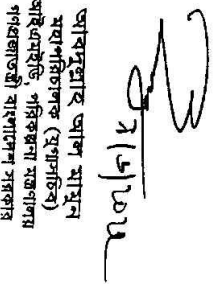 আবদুল্লাহ আল মামুন
মহাপরিচালক (যুগ্মসচিব)
আইএমইডি, পরিকল্পনা মন্ত্রণালয়
গণপ্রজাতন্ত্রী বাংলাদেশ সরকার